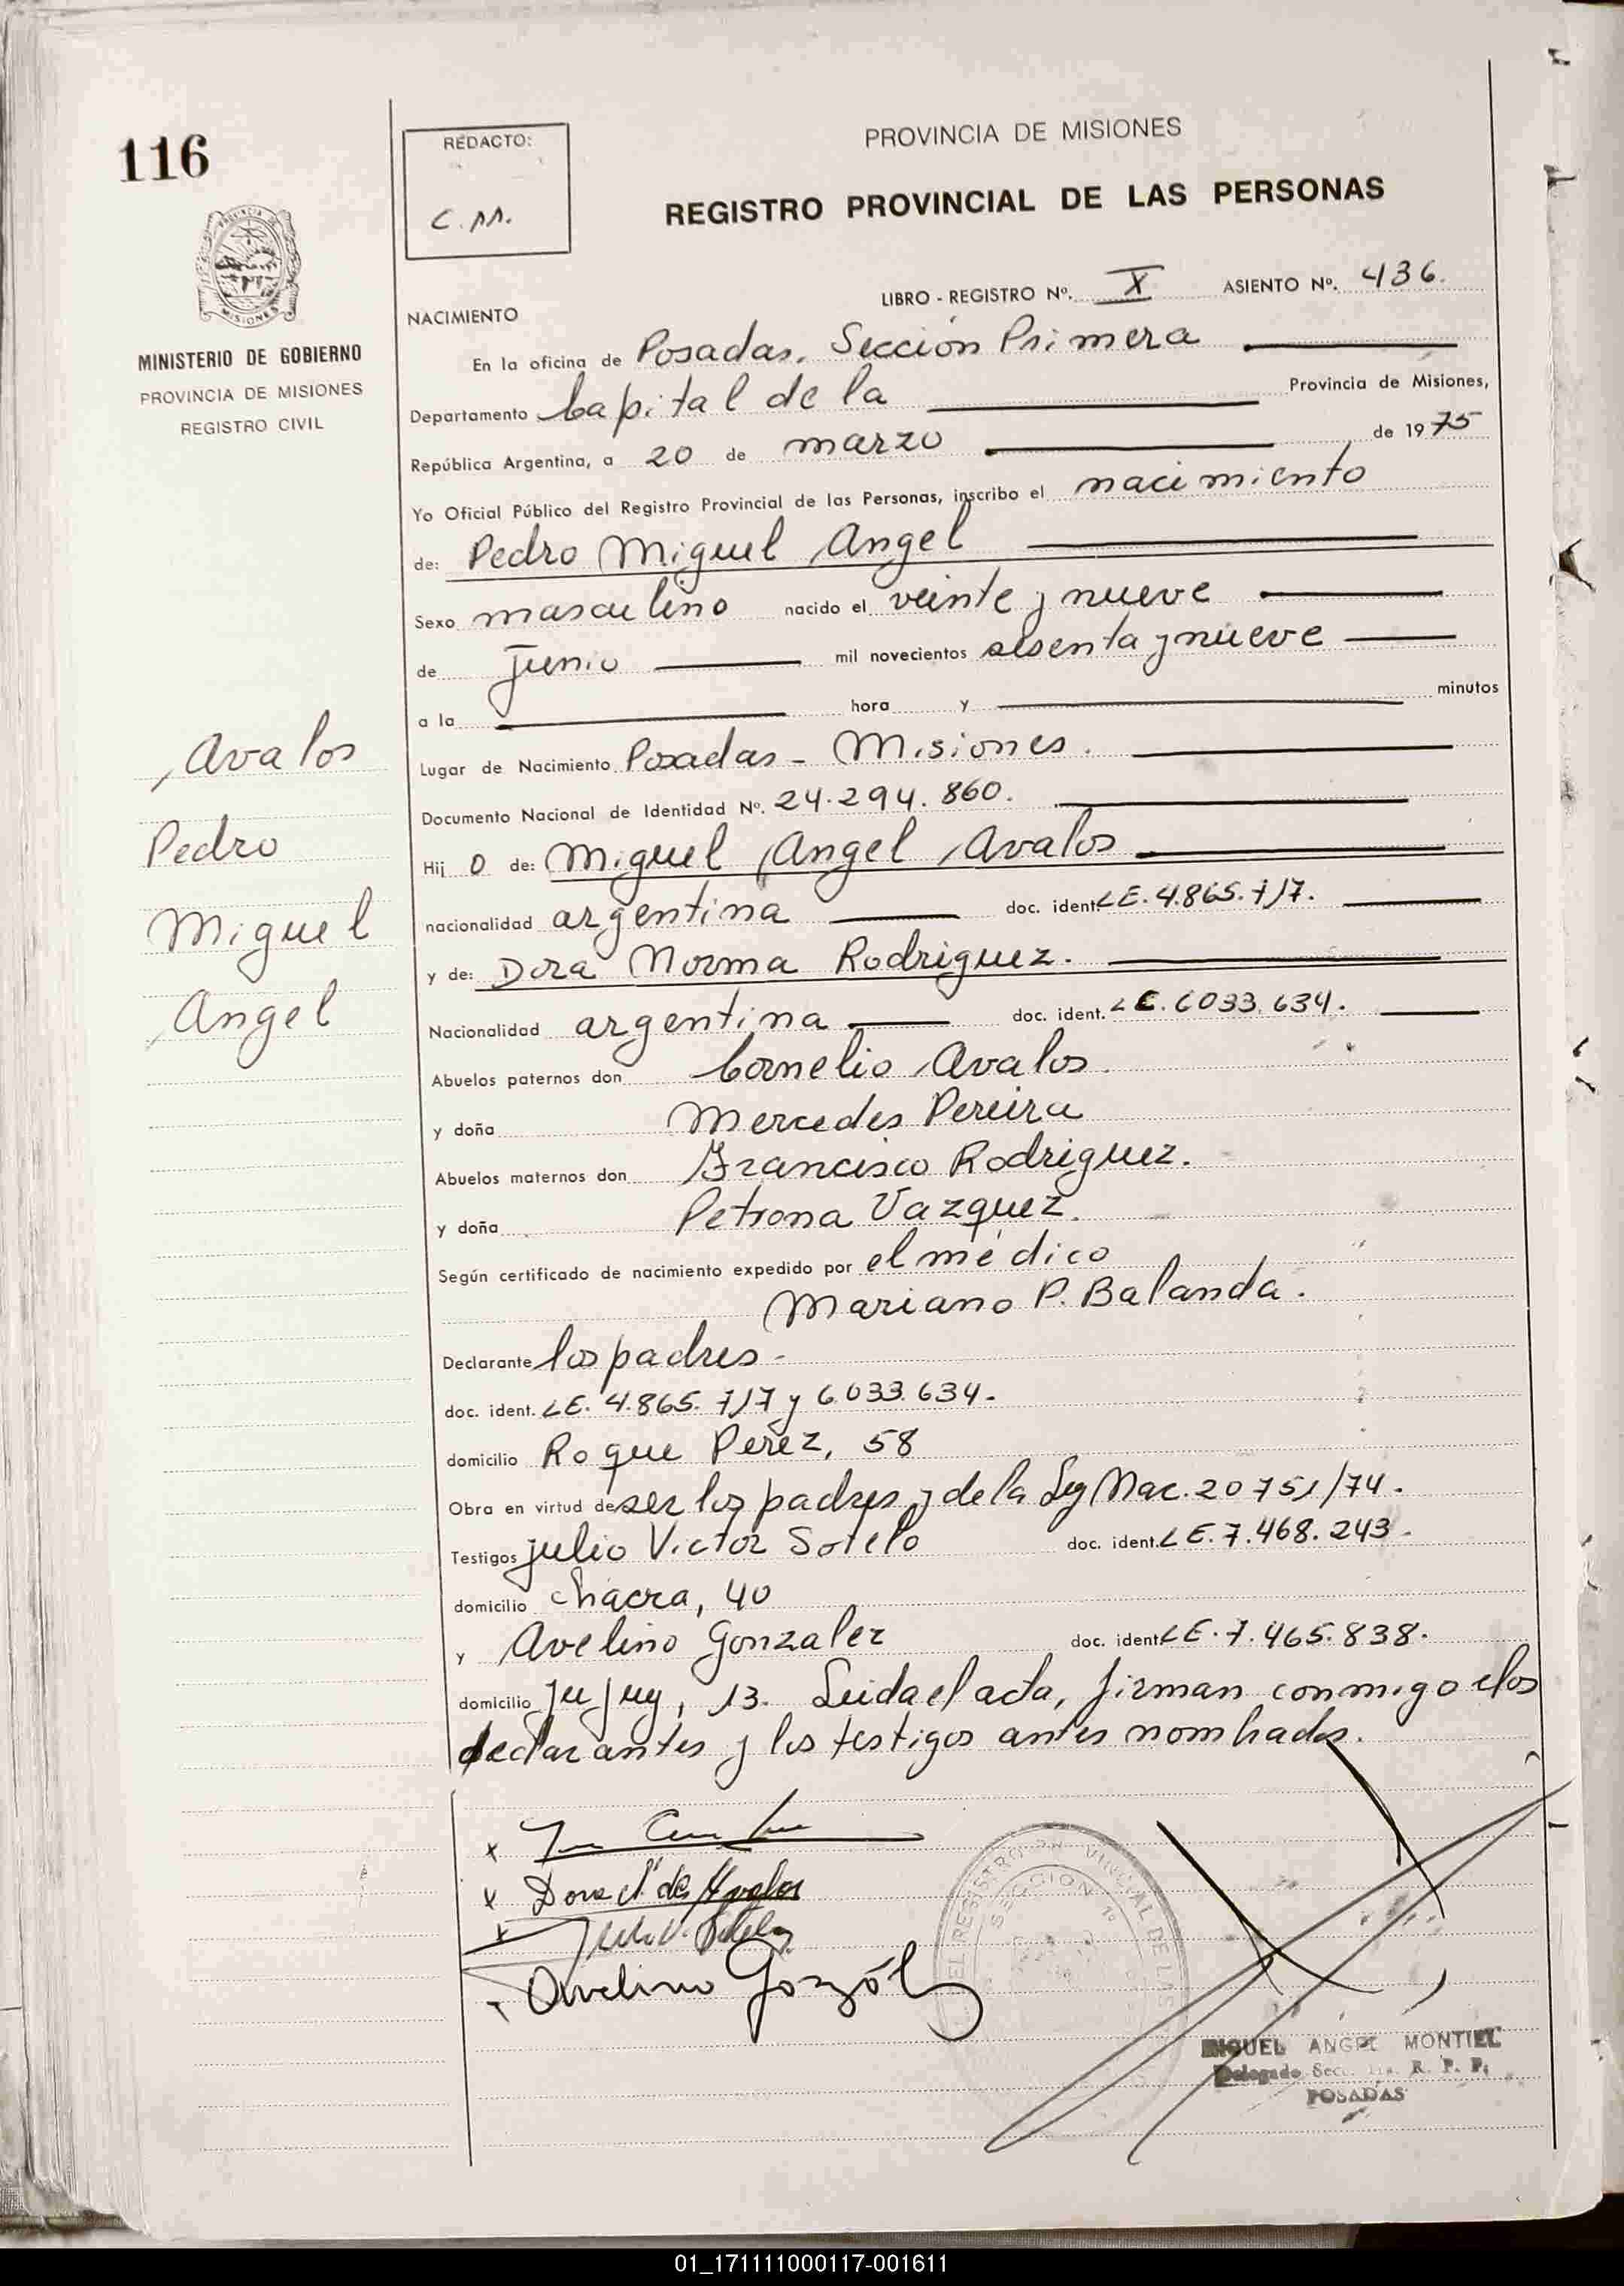 116
REDACTO:
C.M.
PROVINCIA DE MISIONES
REGISTRO PROVINCIAL DE LAS PERSONAS
MINISTERIO DE GOBIERNO
PROVINCIA DE MISIONES
REGISTRO CIVIL
LIBRO - REGISTRO Nº. X ASIENTO Nº. 436.
NACIMIENTO
En la oficina de Posadas. Sección Primera
Departamento Capital de la Provincia de Misiones,
República Argentina, a 20 de marzo de 1975
Yo Oficial Público del Registro Provincial de las Personas, inscribo el nacimiento
de: Pedro Miguel Angel
Sexo masculino nacido el veinte y nueve
de junio mil novecientos sesenta y nueve
a la hora y minutos
Avalos
Pedro
Miguel
Angel
Lugar de Nacimiento Posadas - Misiones.
Documento Nacional de Identidad Nº. 24.294.860.
Hij o de: Miguel Angel Avalos
nacionalidad argentina doc. ident. LE. 4.865.717.
y de: Dora Norma Rodriguez.
Nacionalidad argentina doc. ident. LE. 6033.634.
Abuelos paternos don Cornelio Avalos.
y doña Mercedes Pereira
Abuelos maternos don Francisco Rodriguez.
y doña Petrona Vazquez.
Según certificado de nacimiento expedido por el médico
Mariano P. Balanda.
Declarante los padres -
doc. ident. LE. 4.865.717 y 6.033.634.-
domicilio Roque Perez, 58
Obra en virtud de ser los padres y de la Ley Nac. 20751/74.
Testigos julio Victor Sotelo doc. ident. LE. 7.468.243.
domicilio chacra, 40
y Avelino Gonzalez doc. ident. LE. 7.465.838.
domicilio Jujuy, 13. Leida el acta, firman conmigo los
declarantes y los testigos antes nombrados.
Dora N. de Avalos
Avelino
EL REGISTRO PROVINCIAL DE LAS
SECCION 1º
MIGUEL ANGEL MONTIEL
Delegado Sec. R. P. P.
POSADAS
01_171111000117-001611